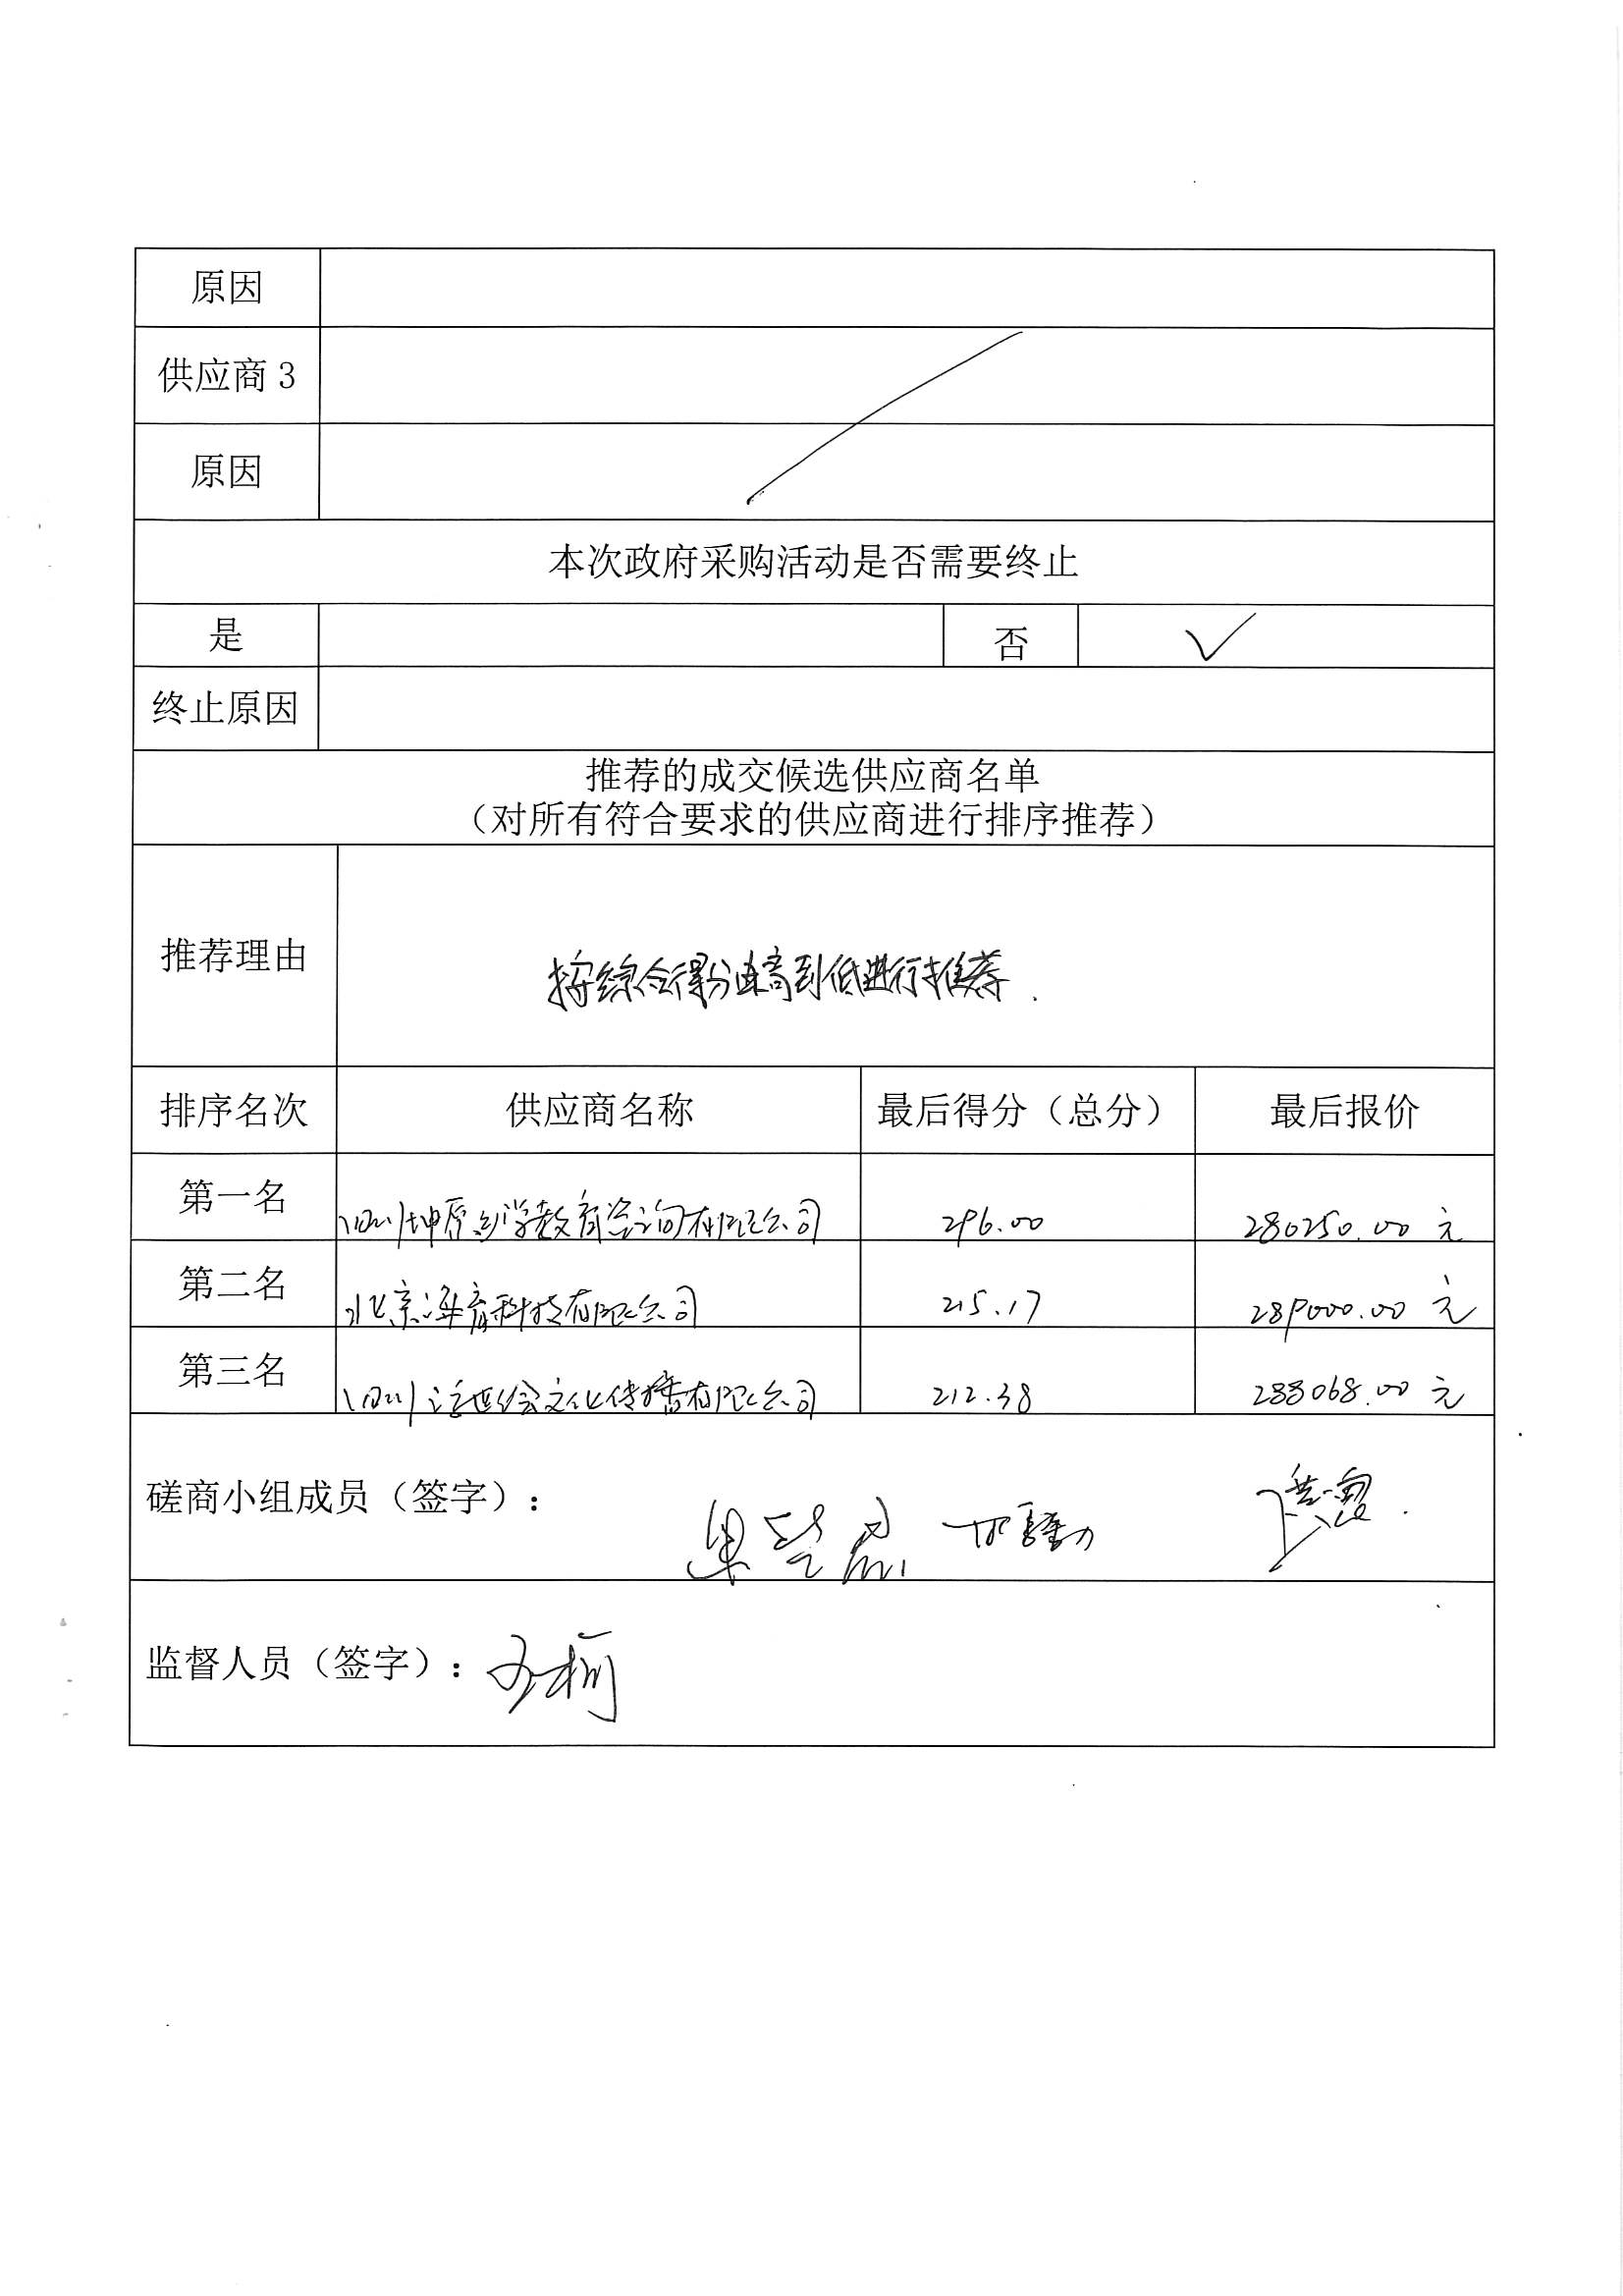 原因
供应商 3
原因
本次政府采购活动是否需要终止
是 否 ✓
终止原因
推荐的成交候选供应商名单
（对所有符合要求的供应商进行排序推荐）
推荐理由 按综合得分由高到低进行推荐.
排序名次 供应商名称 最后得分（总分） 最后报价
第一名 四川坤 学教育咨询有限公司 296.00 280250.00 元
第二名 北京 育科技有限公司 215.17 289000.00 元
第三名 四川 世绘文化传播有限公司 212.38 288068.00 元
磋商小组成员（签字）：
监督人员（签字）：